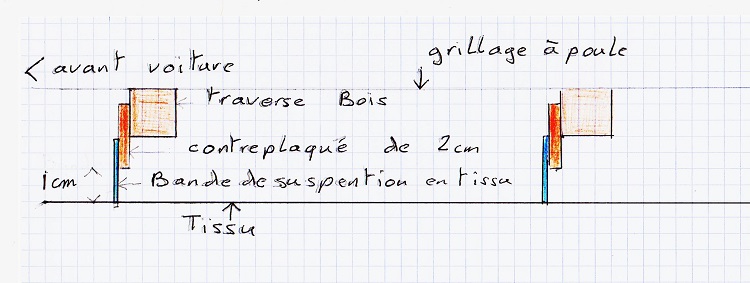 grillage à poule
< avant voiture
traverse Bois
contreplaqué de 2cm
1cm
Bande de suspention en tissu
Tissu